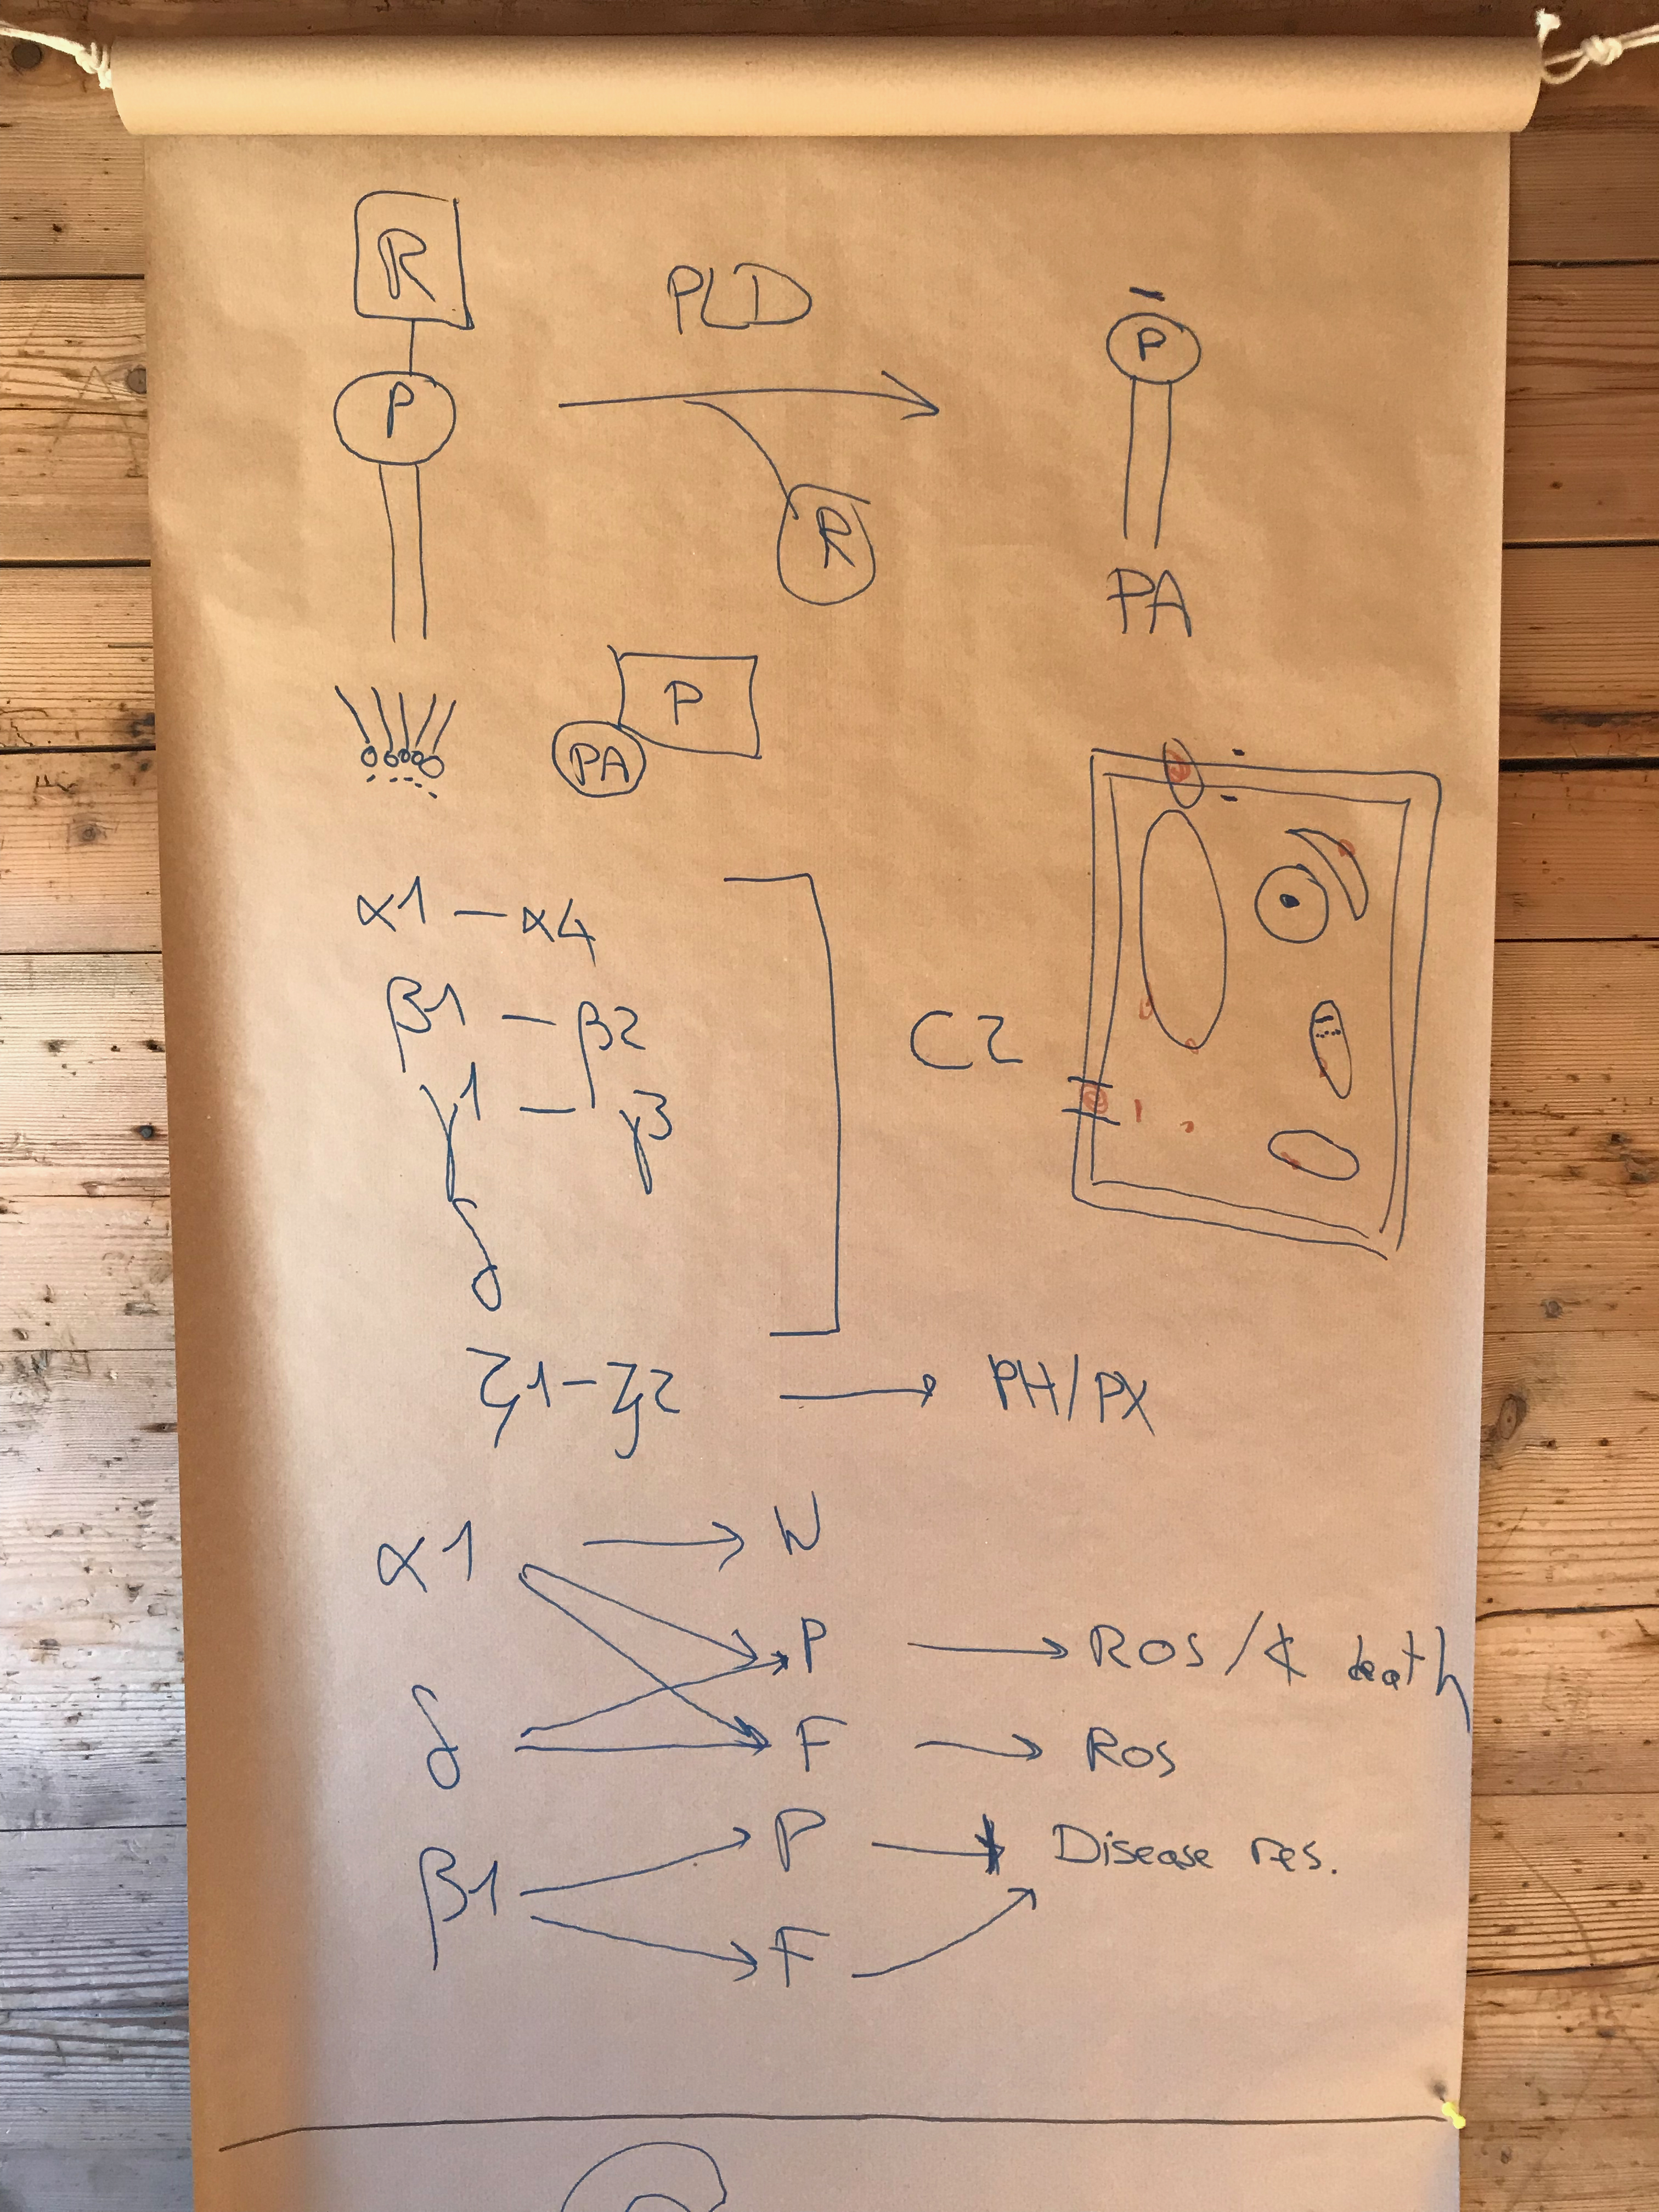 R
PLD
P
P
R
PA
P
PA
α1 – α4
β1 – β2
γ1 – γ3
δ
C2
ζ1 – ζ2 → PH/PX
α1 → W
P → ROS / ¢ death
δ
F → ROS
β1
P → Disease res.
F